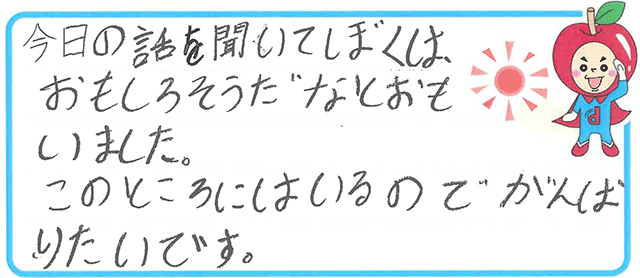 今日の話を聞いてしぼくは、
おもしろそうだなとおも
いました。
このところにはいるのでがんば
りたいです。
d